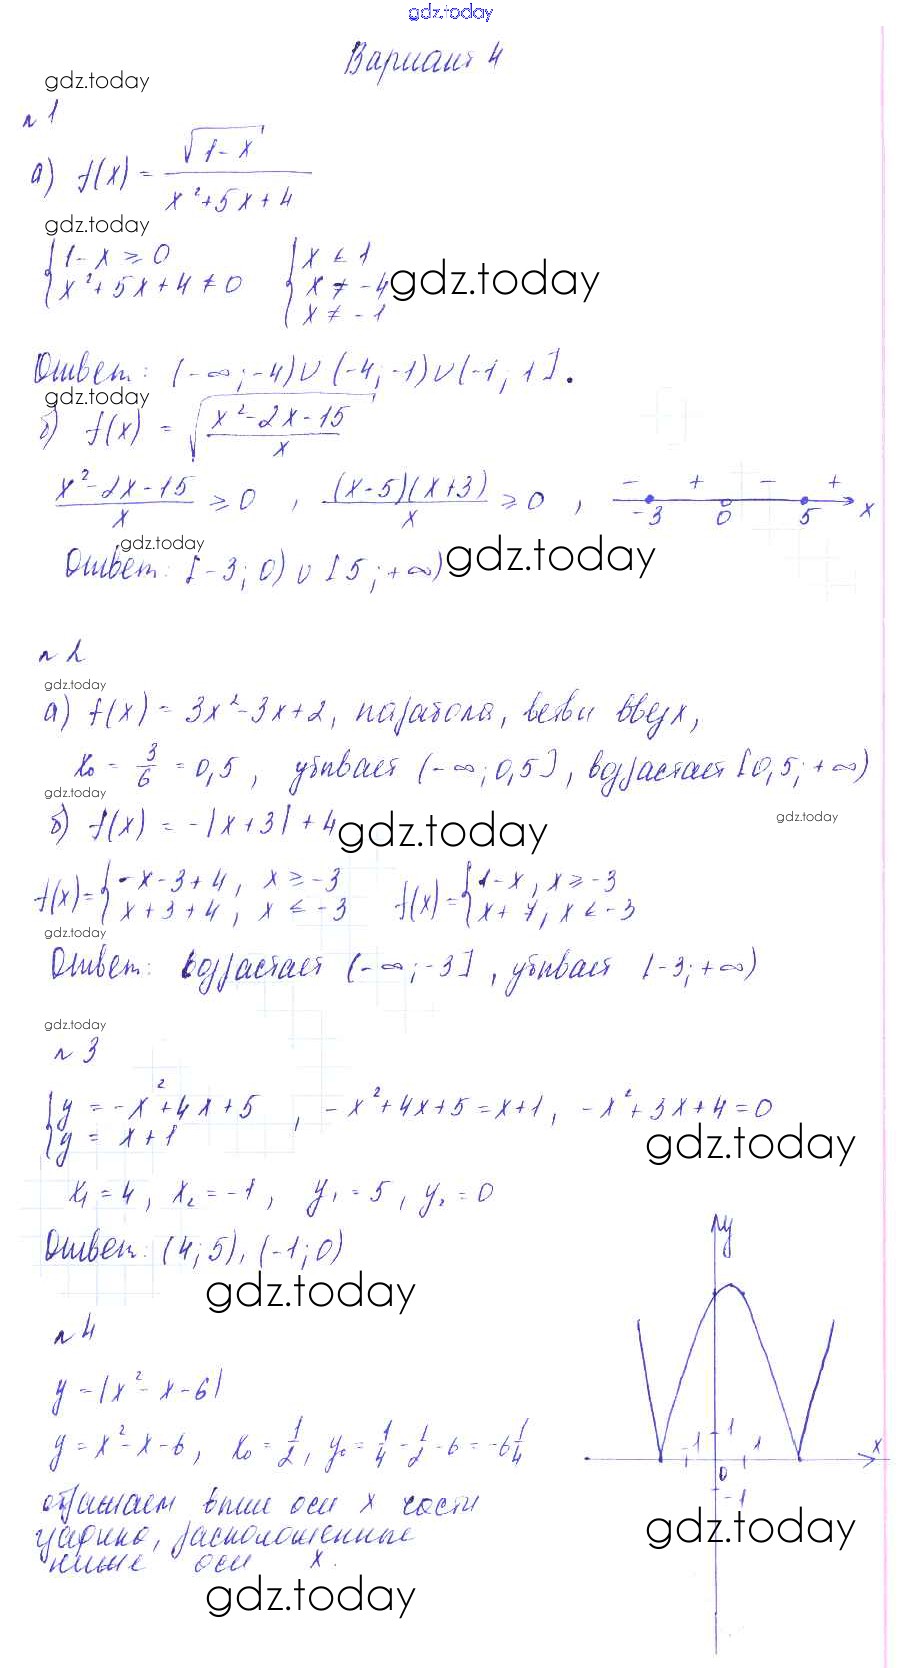 gdz.today
Вариант 4
gdz.today
n 1
а) f(x) = √(1-x) / (x²+5x+4)
gdz.today
{ 1-x ≥ 0    { x ≤ 1
x²+5x+4 ≠ 0    x ≠ -4    gdz.today
x ≠ -1
Ответ: (-∞;-4)∪(-4;-1)∪(-1;1].
gdz.today
б) f(x) = √((x²-2x-15)/x)
(x²-2x-15)/x ≥ 0 , (x-5)(x+3)/x ≥ 0 , - + - + -3 0 5 x
gdz.today
Ответ: [-3;0)∪[5;+∞) gdz.today
n 2
gdz.today
а) f(x) = 3x²-3x+2, парабола, ветви вверх,
x₀ = 3/6 = 0,5 , убывает (-∞;0,5] , возрастает [0,5;+∞)
gdz.today
б) f(x) = -|x+3|+4 gdz.today gdz.today
f(x)= { -x-3+4, x ≥ -3    f(x)= { 1-x, x ≥ -3
x+3+4, x ≤ -3    x+7, x ≤ -3
gdz.today
Ответ: возрастает (-∞;-3] , убывает [-3;+∞)
gdz.today
n 3
{ y = -x²+4x+5 , -x²+4x+5=x+1, -x²+3x+4=0
y = x+1
gdz.today
x₁=4, x₂=-1, y₁=5, y₂=0
Ответ: (4;5), (-1;0)
gdz.today
n 4
y
y=|x²-x-6|
y=x²-x-6, x₀=1/2, y₀=1/4-1/2-6=-6 1/4
-1 1 0 1 x -1
отражаем выше оси x части
графика, расположенные
ниже оси x.
gdz.today
gdz.today